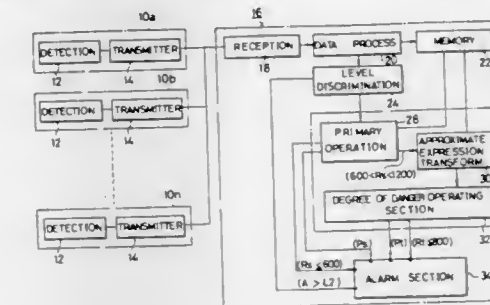 10a
DETECTION
TRANSMITTER
12
14
10b
DETECTION
TRANSMITTER
12
14
10n
DETECTION
TRANSMITTER
12
14
16
RECEPTION
18
DATA PROCESS
20
MEMORY
22
LEVEL
DISCRIMINATION
24
28
PRIMARY
OPERATION
(600<Rs<1200)
APPROXIMATE
EXPRESSION
TRANSFORM
30
DEGREE OF DANGER OPERATING
SECTION
32
(Ps)
(Pt)
(Rs ≤600)
(A > L2)
ALARM SECTION